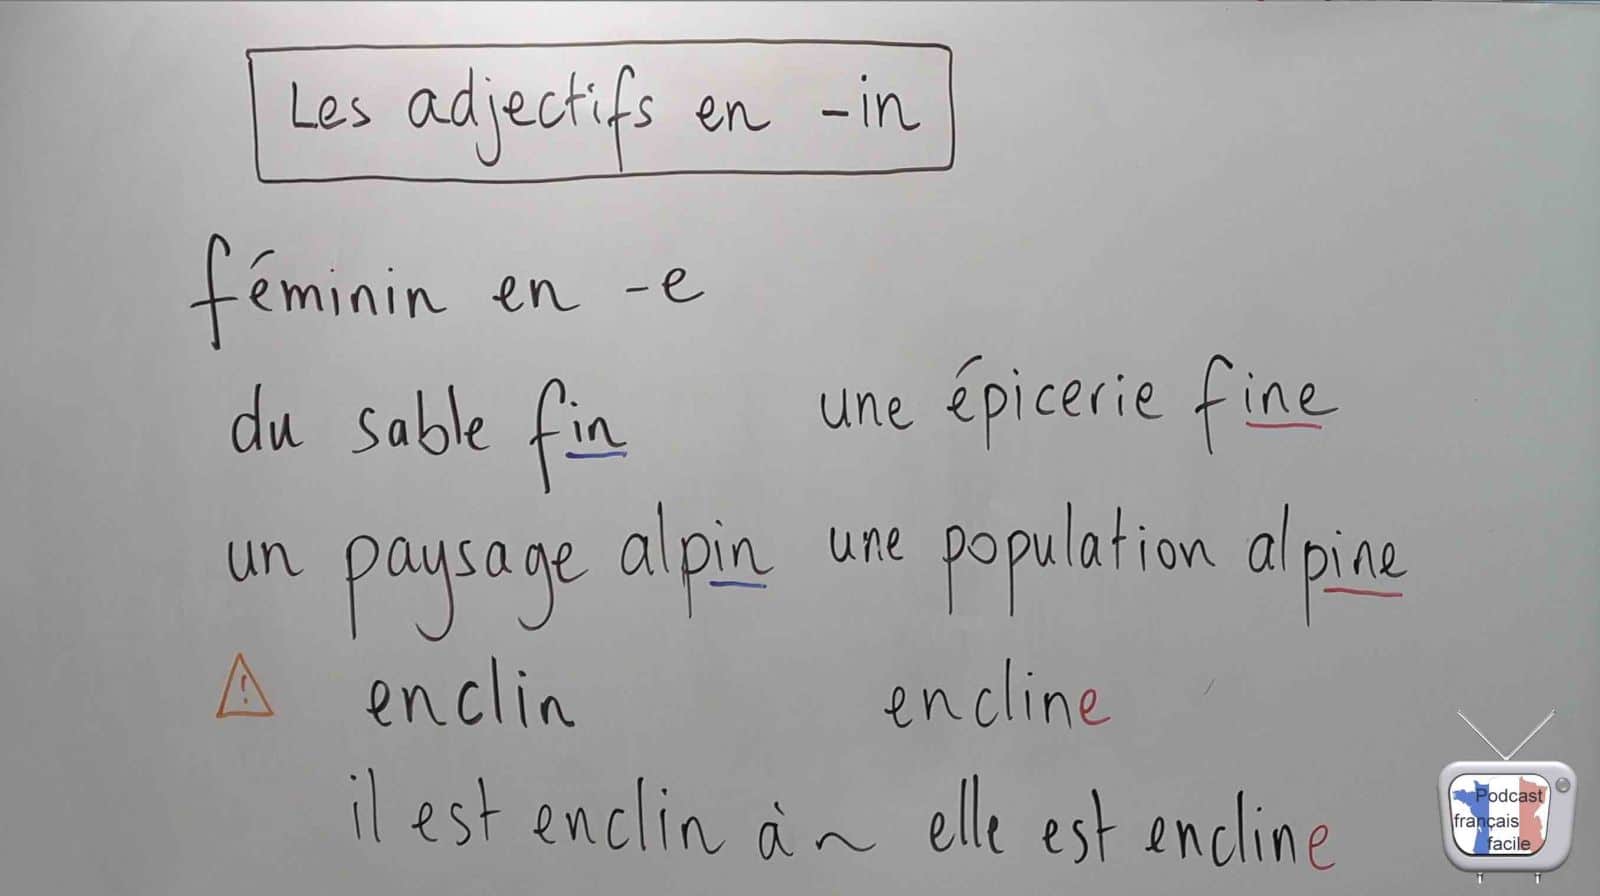 Les adjectifs en -in
féminin en -e
du sable fin une épicerie fine
un paysage alpin une population alpine
enclin encline
il est enclin à ~ elle est encline
Podcast
français
facile